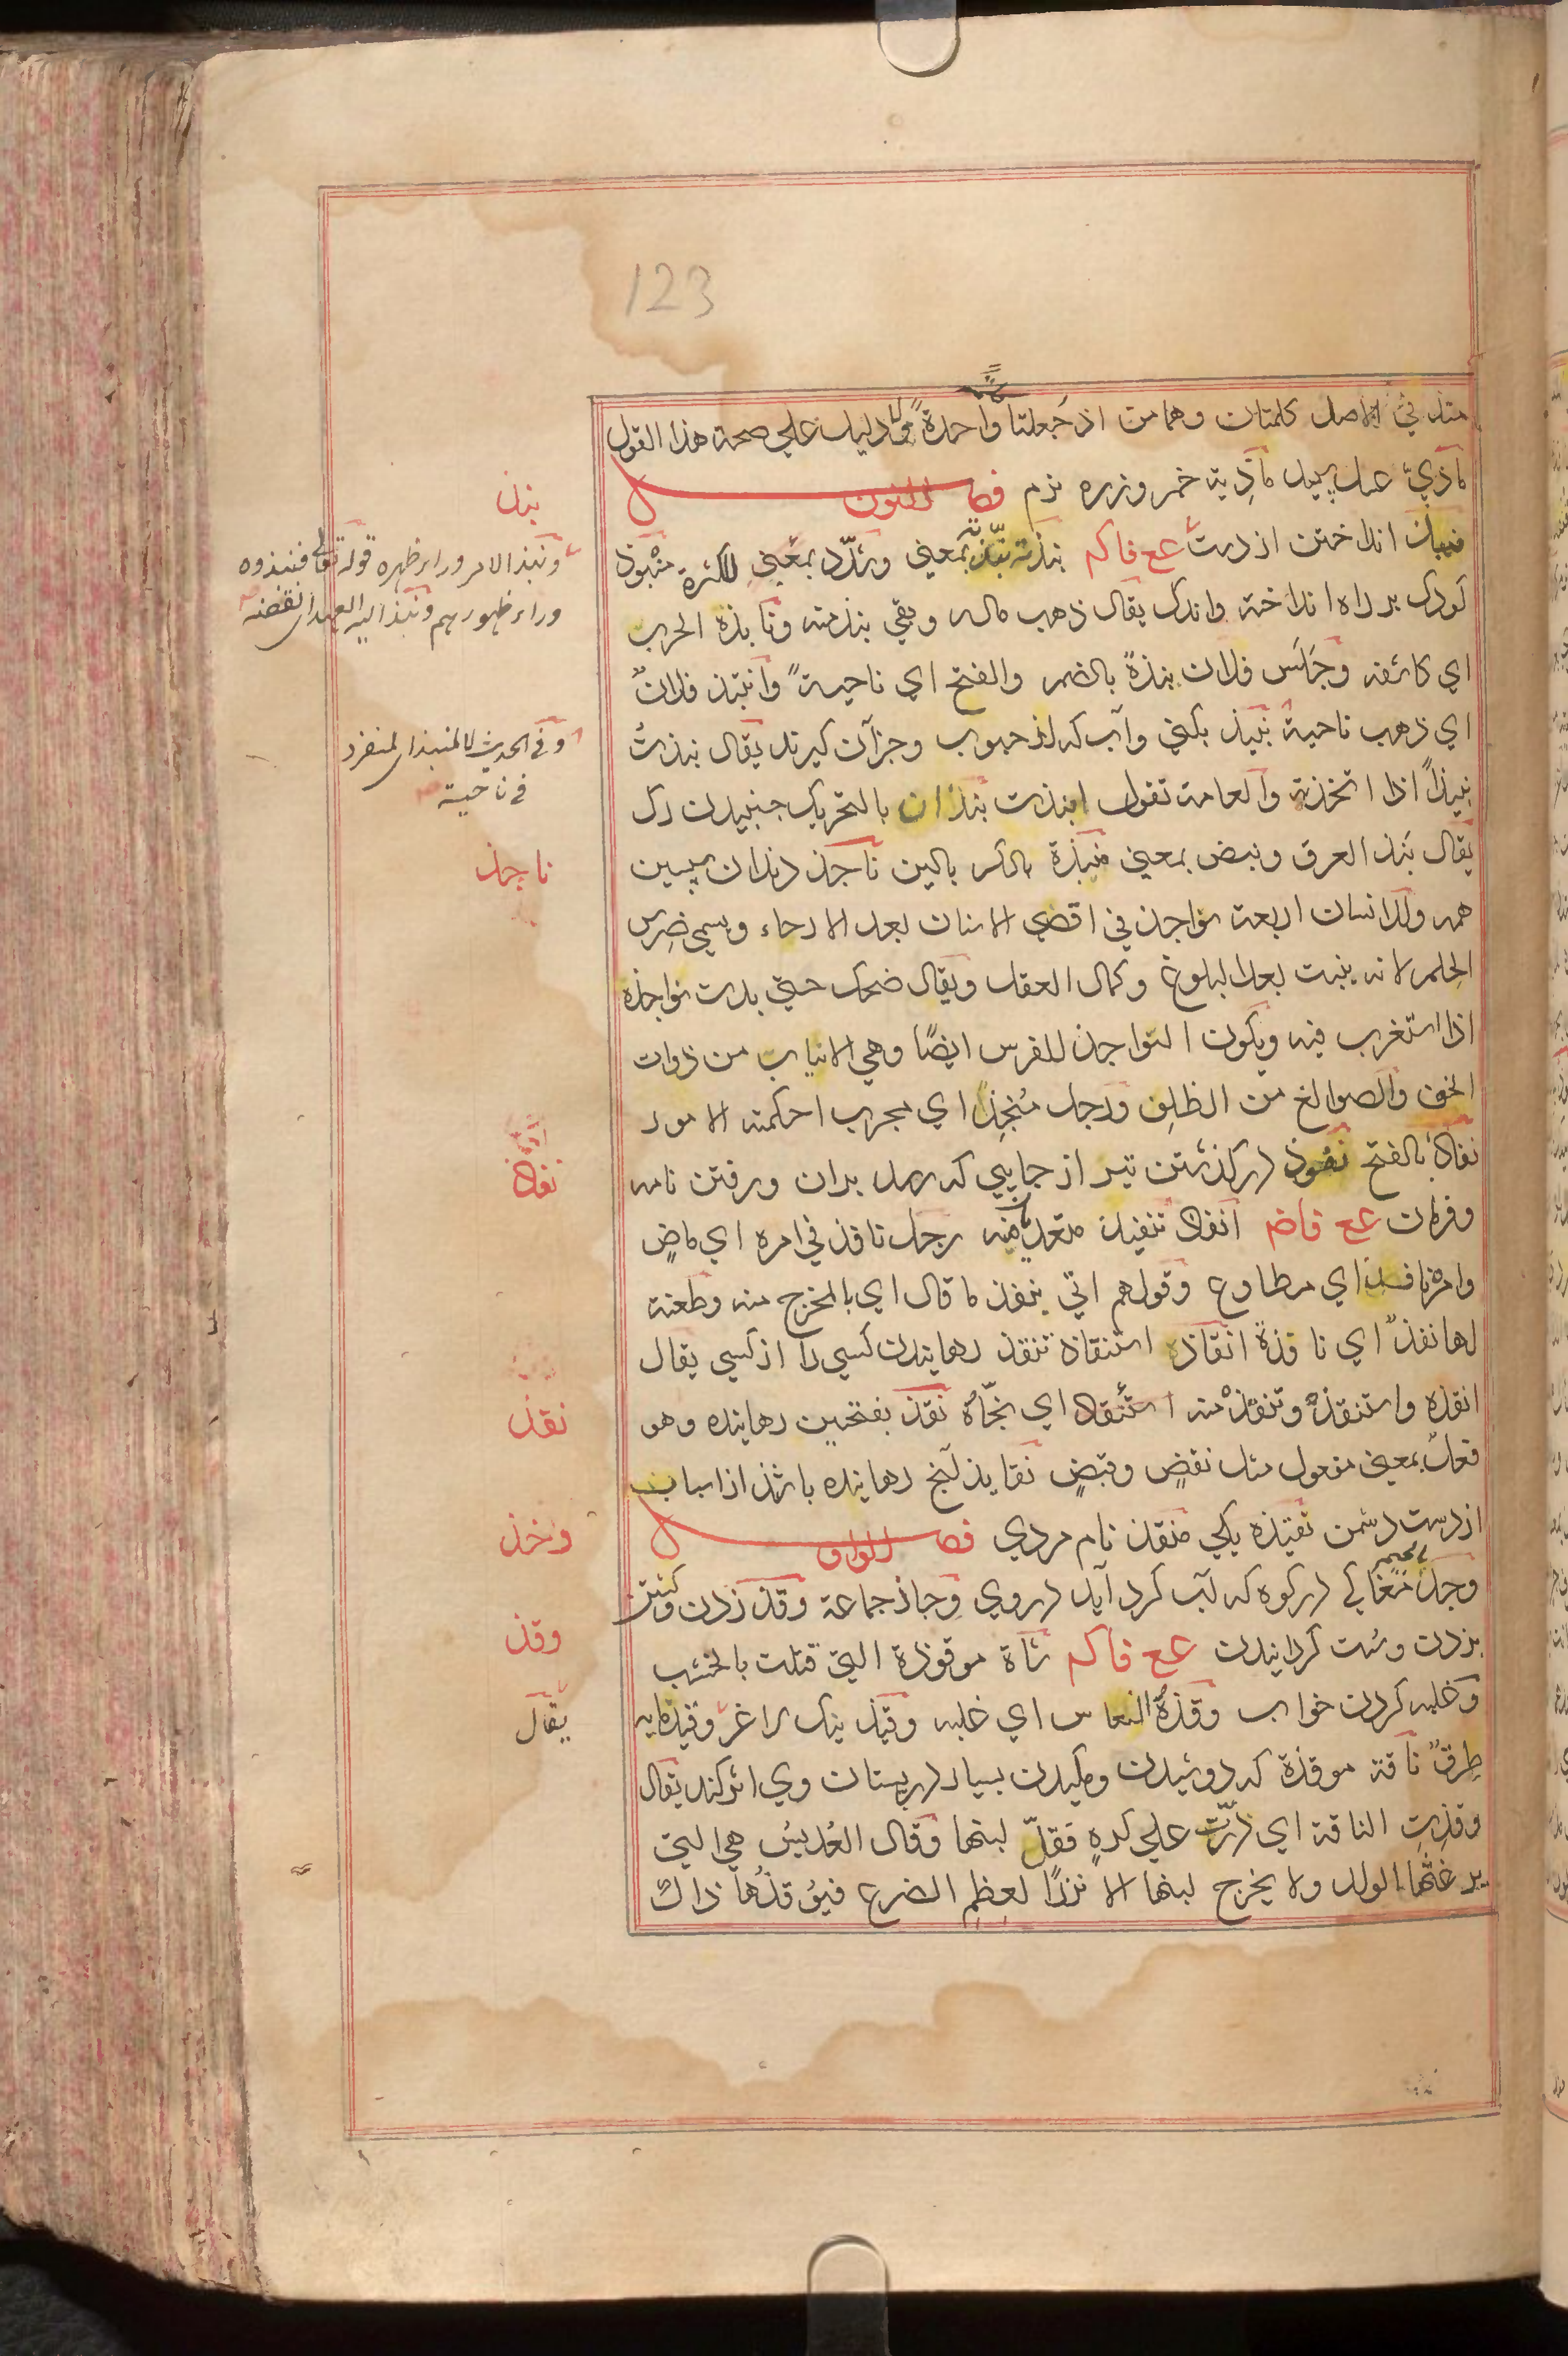 123
منذ في الاصل كلمتان وهما من اذ جعلتا واحدة ولا دليل على صحة هذا القول
ماذيّ عسل سپيد ماذية خمر وزره نرم فصل النون
نبذ انداختن از دست عع فاكم نبذته نبّذته بمعني وشدّد بمعني للكثرة منبوذ
كودك بر راه انداخته واندك يقال ذهب ماله وبقي نبذ منه ونابذه الحرب
اي كاشفه وجَلَسَ فلان نبذةً بالضم والفتح اي ناحيةً وانتبذ فلانٌ
اي ذهب ناحية نبيذ بكني وآب كه از حبوب وجز آن كيرند يقال نبذتُ
نبيذًا اذا اتخذته والعامة تقول انبذت نبذان بالتحريك جنبيدن رك
يقال نبذ العرق ونبض بمعني منبذة بالكسر بالين ناجذ دندان پسين
همه وللانسان اربعة نواجذ في اقصي الاسنان بعد الارحاء ويسمي ضِرس
الحِلم لانه ينبت بعد البلوغ وكمال العقل ويقال ضحك حتي بدت نواجذه
اذا استغرب فيه ويكون النواجذ للفرس ايضًا وهي الانياب من ذوات
الخف والصوالغ من الظلِف ورجل مُنجِذ اي مجرب احكمته الامور
نفاذ بالفتح نفوذ در كذشتن تير از جايي كه رسد بدان ورفتن نامه
وفرمان عع فاضم انفاذ تنفيذ متعديان منه رجل نافذ في امره اي ماضٍ
وامره نافذ اي مطاوع وقولهم اتي بنفذ ما قال اي بالمخرج منه وطعنة
لها نفذٌ اي نافذة انقاذ استنقاذ تنقذ رهانيدن كسي را از كسي يقال
انقذه واستنقذه وتنقذه منه استنقاذ اي نجّاه نقذ بفتحتين رهانيده وهو
فعلٌ بمعني مفعول مثل نفضٍ وقبضٍ نقايذ آنچ رهانيده باشند از اسباب
از دست دشمن نقيذه يكي منقذ نام مردي فصل الواو
وجذ مغاكي در كوه كه آب كرد آيد در وي وجاذ جماعة وقذ زدن وكشتن
بزدن وسست كردانيدن عع فاكم شاة موقوذة التي قتلت بالخشب
وغلبه كردن خواب وقذهُ النعاس اي غلبه وقيذ
طِرقٌ ناقة موقذة كه دوشيدن ومكيدن بسيار در پستان وي اثر كند يقال
وقذتِ الناقة اي درّت علي كرهٍ فقلّ لبنها وقال العُدبسُ هي التي
يرغثها الولد ولا يخرج لبنها الا نزرًا لعِظمِ الضرع فيوقذُها ذاك
نبذ
ونبذ الامر وراء ظهره قوله تعالى فنبذوه
وراء ظهورهم ونبذ اليه العهد اي نقضه
وفي الحديث المنبذ اي المنفرد
في ناحية
ناجذ
نفاذ
نقذ
وخذ
وقذ
يقال